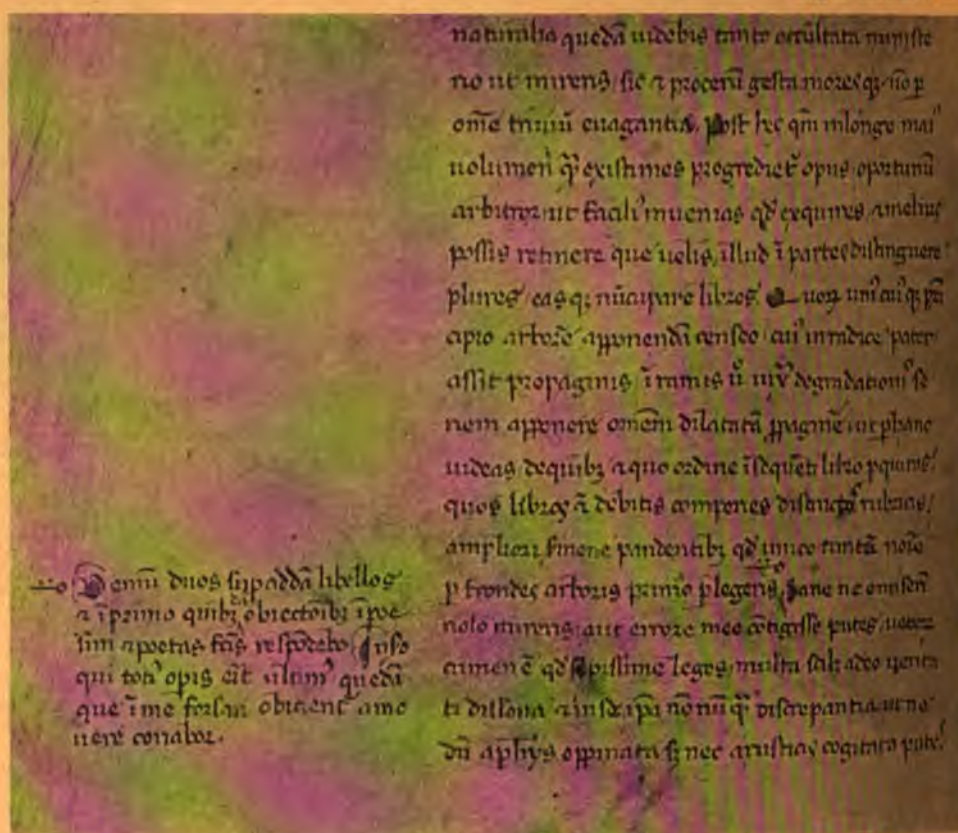 naturalia quedā uidebis tanto occultata miniſte
rio ut mireris ſic ⁊ procerū geſta moreſq; nō ꝑ
om̄e triuiū euagantia. Poſt hec qm̄ in longe mai⁹
uolumen q̄ꝫ exiſtimes progrediet᷑ opus oportunū
arbitror ut facili⁹ inuenias qđ exquires, ⁊ melius
poſſis retinere que uelis, illud ī partes diſtinguere
plures eas q; nūcupare libros. Quoꝝ uni cui⁹q; prī
cipio arborē apponendā cenſeo cui⁹ in radice pater
aſſit propaginis ī ramis u̾o iux̄ degradationis ſe
riem apponere omnem dilatatā ꝓpaginē ut ꝑ hanc
uideas de quibꝫ ⁊ quo ordine ī ſequēti libro ꝑquiras.
quos libros ā debitis comperies diſtinctos rubricis,
ampliori ſermone pandentibꝫ qđ unico tantū noīe
ꝑ frondes arboris primo ꝑlegeris. Sane ne omiſerī
nolo mireris aut errore meo cōtigiſſe putes, ueterū
crimen ē qđ ſepiſſime leges, multa ſcilꝫ adeo uerita
ti diſſona ⁊ in ſe ip̄a nō nūq̄ꝫ diſcrepantia ut ne
dū a ph̄ys oppinata ſꝫ nec a ruſticis cogitata putes
Demū duos ſuꝑaddā libellos
⁊ ī primo quibꝫdā obiectōibꝫ ī poe
ſim ⁊ poetas fc̄is reſpōdebo. In ſ̄o
qui toti⁹ opis erit ultim⁹ quedā
que ī me forſan obicient᷑ amo
uere conabor.